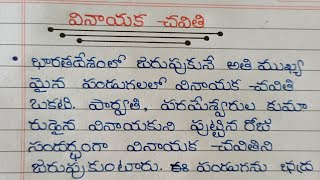 వినాయక చవితి
భారతదేశంలో జరుపుకునే అతి ముఖ్య
మైన పండుగలలో వినాయక చవితి
ఒకటి. పార్వతి, పరమేశ్వరుల కుమా
రుడైన వినాయకుని పుట్టిన రోజు
సందర్భంగా వినాయక చవితిని
జరుపుకుంటారు. ఈ పండుగను భాద్ర